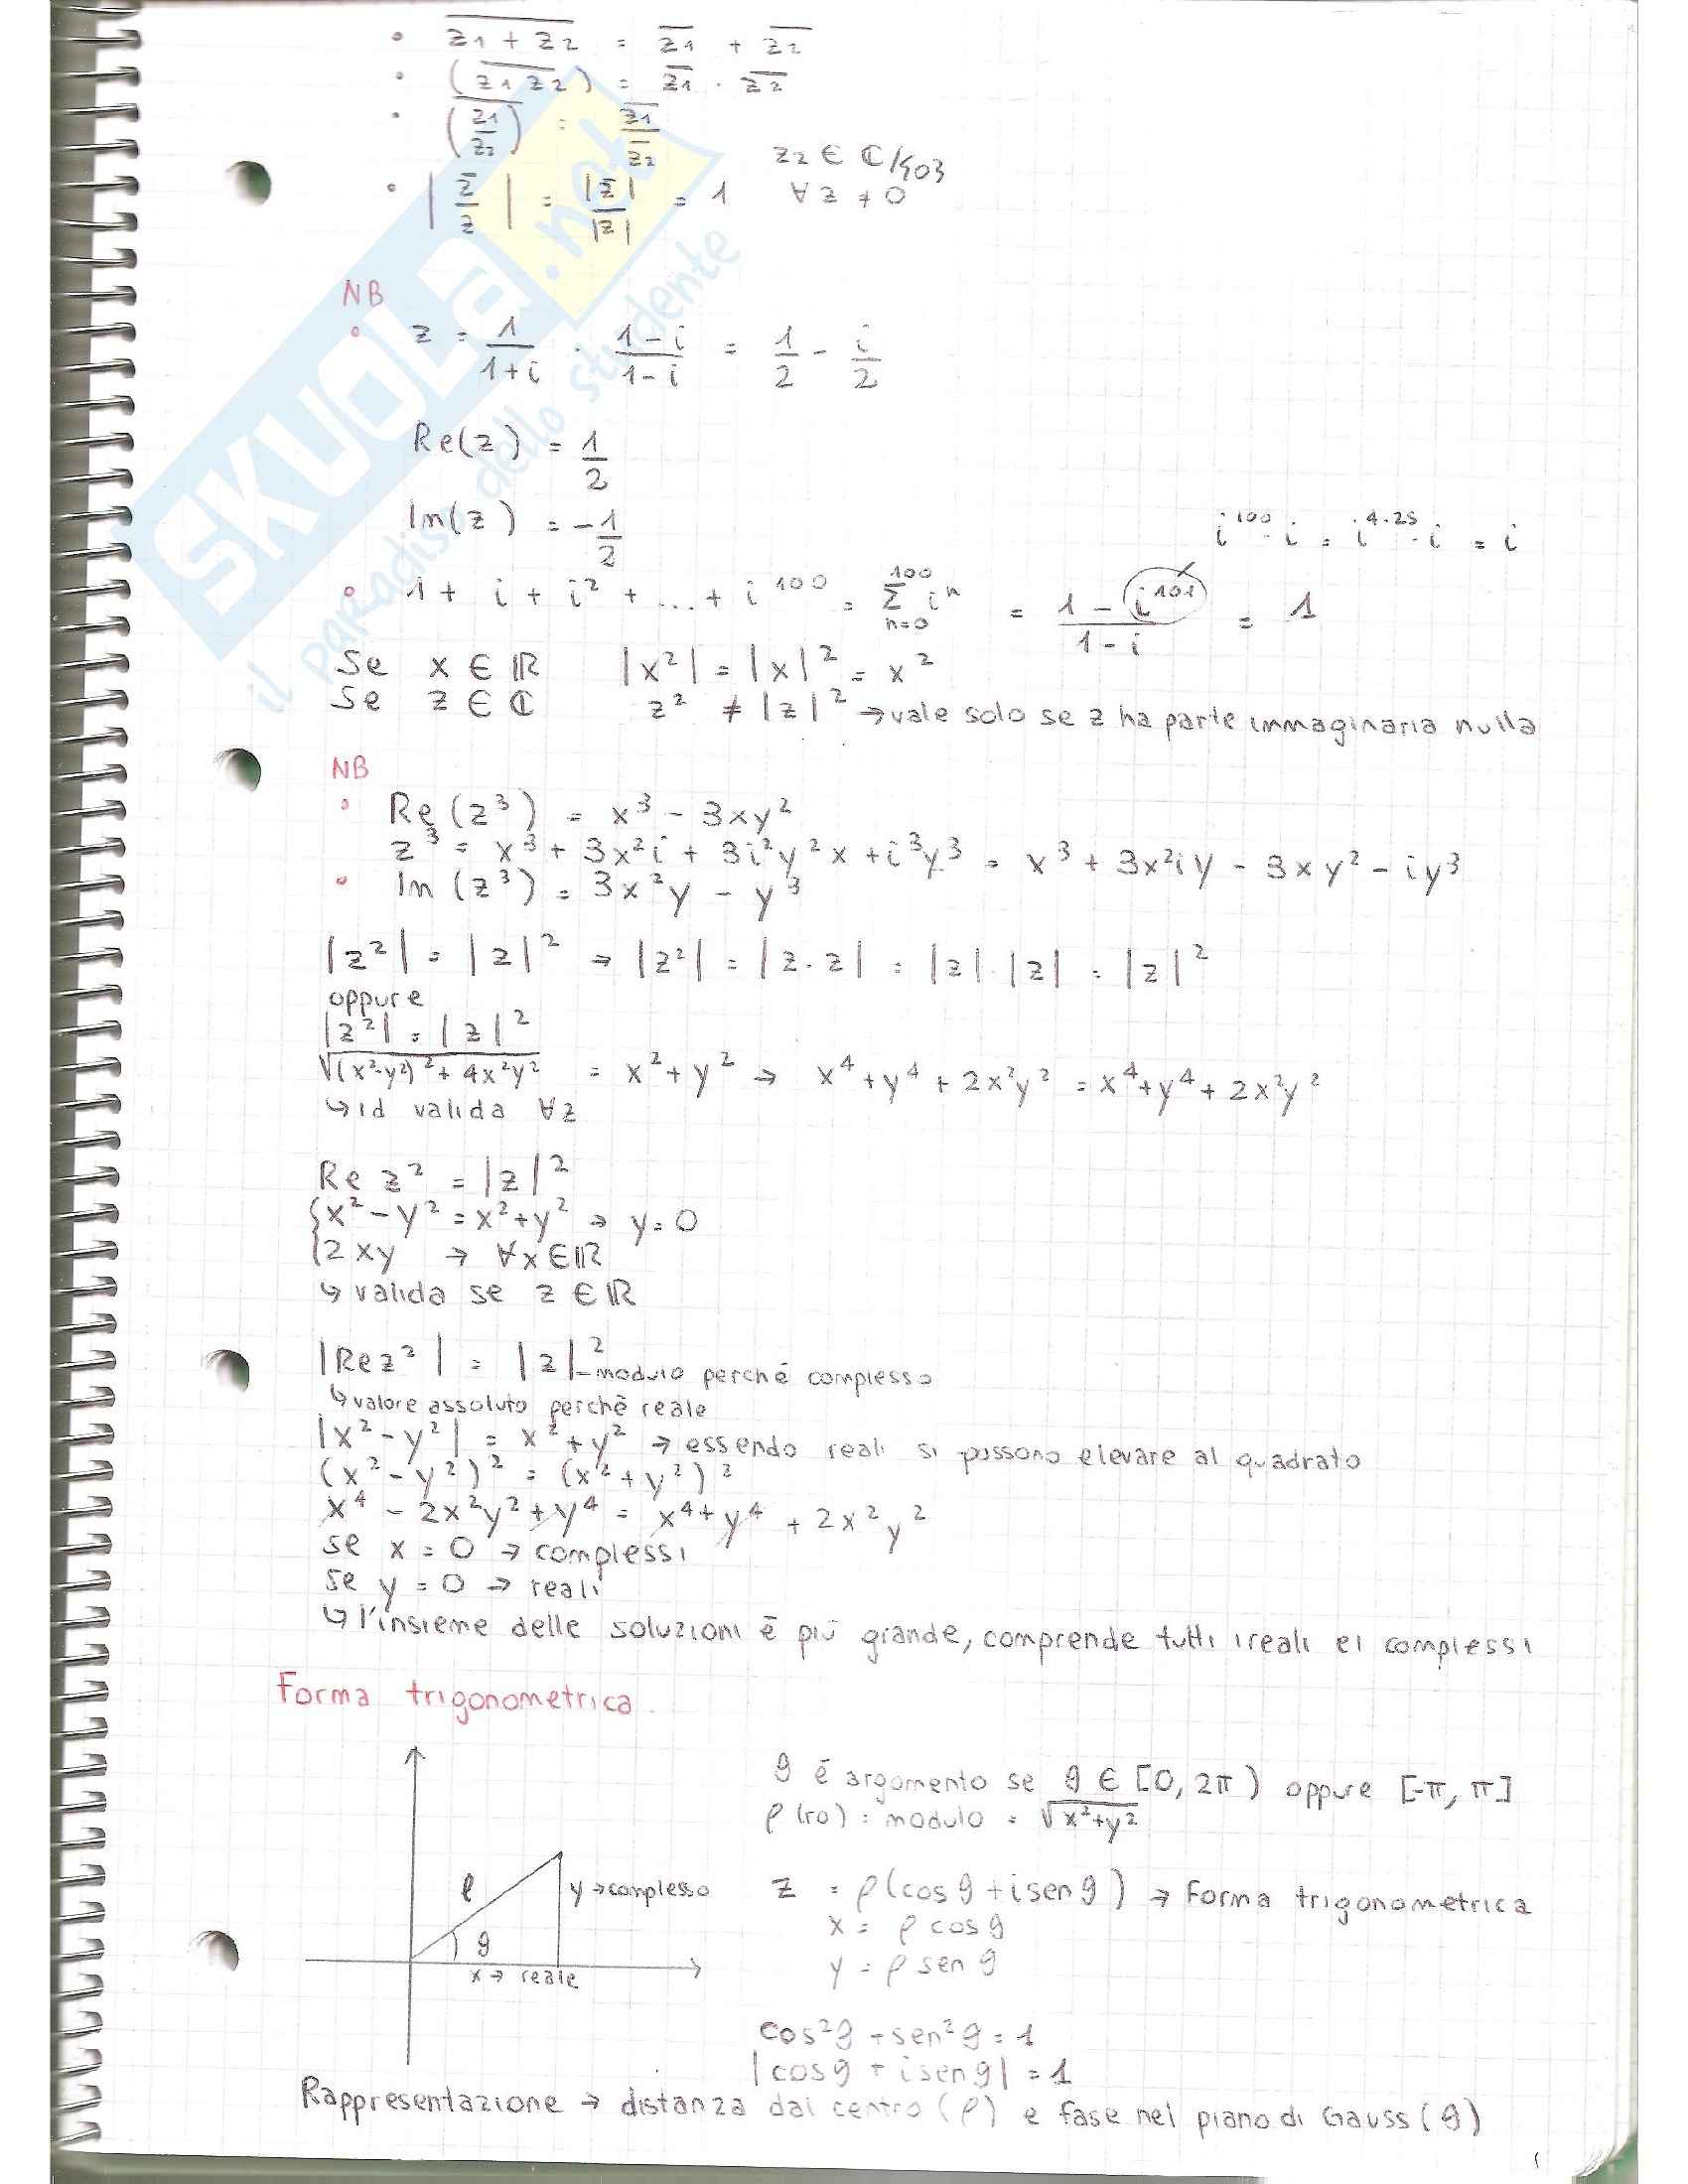 • \overline{z1 + z2} = \overline{z1} + \overline{z2}
• (\overline{z1 z2}) = \overline{z1} · \overline{z2}
• \overline{(z1/z2)} = \overline{z1}/\overline{z2} z2 ∈ ℂ/{0}
• |z̄/z| = |z̄|/|z| = 1 ∀ z ≠ 0
SKUOLA.net
il paradiso dello studente
NB
• z = 1/(1+i) · (1-i)/(1-i) = 1/2 - i/2
Re(z) = 1/2
Im(z) = -1/2
i^100 · i = i^4·25 · i = i
• 1 + i + i² + ... + i^100 = Σ_{n=0}^{100} i^n = (1 - i^101)/(1 - i) = 1
Se x ∈ ℝ |x²| = |x|² = x²
Se z ∈ ℂ z² ≠ |z|² → vale solo se z ha parte immaginaria nulla
NB
• Re(z³) = x³ - 3xy²
z³ = x³ + 3x²i + 3i²y²x + i³y³ = x³ + 3x²iy - 3xy² - iy³
• Im(z³) = 3x²y - y³
|z²| = |z|² → |z²| = |z·z| = |z|·|z| = |z|²
oppure
|z²| = |z|²
√((x²-y²)² + 4x²y²) = x² + y² → x⁴ + y⁴ + 2x²y² = x⁴ + y⁴ + 2x²y²
↳ id valida ∀z
Re z² = |z|²
{x² - y² = x² + y² → y = 0
{2xy → ∀x ∈ ℝ
↳ valida se z ∈ ℝ
|Re z²| = |z|² - modulo perché complesso
↳ valore assoluto perchè reale
|x² - y²| = x² + y² → essendo reali si possono elevare al quadrato
(x² - y²)² = (x² + y²)²
x⁴ - 2x²y² + y⁴ = x⁴ + y⁴ + 2x²y²
se x = 0 → complessi
se y = 0 → reali
↳ l'insieme delle soluzioni è più grande, comprende tutti i reali e i complessi
Forma trigonometrica
ϑ è argomento se ϑ ∈ [0, 2π) oppure [-π, π]
ρ (ro) = modulo = √(x²+y²)
ρ
y → complesso
ϑ
x → reale
z = ρ(cos ϑ + i sen ϑ) → Forma trigonometrica
x = ρ cos ϑ
y = ρ sen ϑ
cos²ϑ + sen²ϑ = 1
|cos ϑ + i sen ϑ| = 1
Rappresentazione → distanza dal centro (ρ) e fase nel piano di Gauss (ϑ)